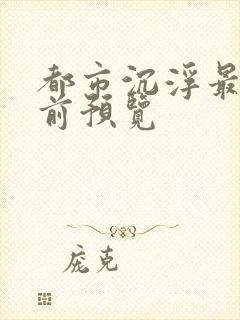 都市沉浮最
前预览
庞克